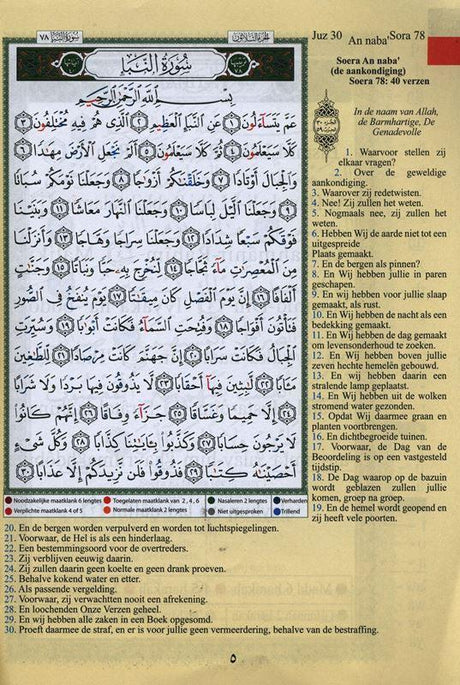 سُورَةُ النَّبَإِ ٧٨
الجُزْءُ الثَّلَاثُونَ
Juz 30 An naba' Sora 78
سُورَةُ النَّبَإِ
بِسْمِ ٱللَّهِ ٱلرَّحْمَٰنِ ٱلرَّحِيمِ
عَمَّ يَتَسَآءَلُونَ ١ عَنِ ٱلنَّبَإِ ٱلْعَظِيمِ ٢ ٱلَّذِى هُمْ فِيهِ مُخْتَلِفُونَ ٣
كَلَّا سَيَعْلَمُونَ ٤ ثُمَّ كَلَّا سَيَعْلَمُونَ ٥ أَلَمْ نَجْعَلِ ٱلْأَرْضَ مِهَٰدًا ٦
وَٱلْجِبَالَ أَوْتَادًا ٧ وَخَلَقْنَٰكُمْ أَزْوَٰجًا ٨ وَجَعَلْنَا نَوْمَكُمْ سُبَاتًا
٩ وَجَعَلْنَا ٱلَّيْلَ لِبَاسًا ١٠ وَجَعَلْنَا ٱلنَّهَارَ مَعَاشًا ١١ وَبَنَيْنَا
فَوْقَكُمْ سَبْعًا شِدَادًا ١٢ وَجَعَلْنَا سِرَاجًا وَهَّاجًا ١٣ وَأَنزَلْنَا
مِنَ ٱلْمُعْصِرَٰتِ مَآءً ثَجَّاجًا ١٤ لِّنُخْرِجَ بِهِۦ حَبًّا وَنَبَاتًا ١٥ وَجَنَّٰتٍ
أَلْفَافًا ١٦ إِنَّ يَوْمَ ٱلْفَصْلِ كَانَ مِيقَٰتًا ١٧ يَوْمَ يُنفَخُ فِى ٱلصُّورِ
فَتَأْتُونَ أَفْوَاجًا ١٨ وَفُتِحَتِ ٱلسَّمَآءُ فَكَانَتْ أَبْوَٰبًا ١٩ وَسُيِّرَتِ
ٱلْجِبَالُ فَكَانَتْ سَرَابًا ٢٠ إِنَّ جَهَنَّمَ كَانَتْ مِرْصَادًا ٢١ لِّلطَّٰغِينَ
مَـَٔابًا ٢٢ لَّٰبِثِينَ فِيهَآ أَحْقَابًا ٢٣ لَّا يَذُوقُونَ فِيهَا بَرْدًا وَلَا شَرَابًا
٢٤ إِلَّا حَمِيمًا وَغَسَّاقًا ٢٥ جَزَآءً وِفَاقًا ٢٦ إِنَّهُمْ كَانُوا۟
لَا يَرْجُونَ حِسَابًا ٢٧ وَكَذَّبُوا۟ بِـَٔايَٰتِنَا كِذَّابًا ٢٨ وَكُلَّ شَىْءٍ
أَحْصَيْنَٰهُ كِتَٰبًا ٢٩ فَذُوقُوا۟ فَلَن نَّزِيدَكُمْ إِلَّا عَذَابًا ٣٠
Noodzakelijke maatklank 6 lengtes Toegelaten maatklank van 2, 4, 6 Nasaleren 2 lengtes Verharden
Verplichte maatklank 4 of 5 Normale maatklank 2 lengtes Niet uitgesproken Trillend
Soera An naba'
(de aankondiging)
Soera 78: 40 verzen
In de naam van Allah,
de Barmhartige, De
Genadevolle
1. Waarvoor stellen zij
elkaar vragen?
2. Over de geweldige
aankondiging.
3. Waarover zij redetwisten.
4. Nee! Zij zullen het weten.
5. Nogmaals nee, zij zullen het
weten.
6. Hebben Wij de aarde niet tot een
uitgespreide
Plaats gemaakt.
7. En de bergen als pinnen?
8. En Wij hebben jullie in paren
geschapen.
9. En wij hebben voor jullie slaap
gemaakt, als rust.
10. En Wij hebben de nacht als een
bedekking gemaakt.
11. En Wij hebben de dag gemaakt
om levensonderhoud te zoeken.
12. En Wij hebben boven jullie
zeven hechte hemelen gebouwd.
13. En wij hebben daarin een
stralende lamp geplaatst.
14. En Wij hebben uit de wolken
stromend water gezonden.
15. Opdat Wij daarmee graan en
planten voortbrengen.
16. En dichtbegroeide tuinen.
17. Voorwaar, de Dag van de
Beoordeling is op een vastgesteld
tijdstip.
18. De Dag waarop op de bazuin
wordt geblazen zullen jullie
komen, groep na groep.
19. En de hemel wordt geopend en
zij heeft vele poorten.
20. En de bergen worden verpulverd en worden tot luchtspiegelingen.
21. Voorwaar, de Hel is als een hinderlaag.
22. Een bestemmingsoord voor de overtreders.
23. Zij verblijven eeuwig daarin.
24. Zij zullen daarin geen koelte en geen drank proeven.
25. Behalve kokend water en etter.
26. Als passende vergelding.
27. Voorwaar, zij verwachtten nooit een afrekening.
28. En loochenden Onze Verzen geheel.
29. En wij hebben alle zaken in een Boek opgesomd.
30. Proeft daarmee de straf, en er is voor jullie geen vermeerdering, behalve van de bestraffing.
٥